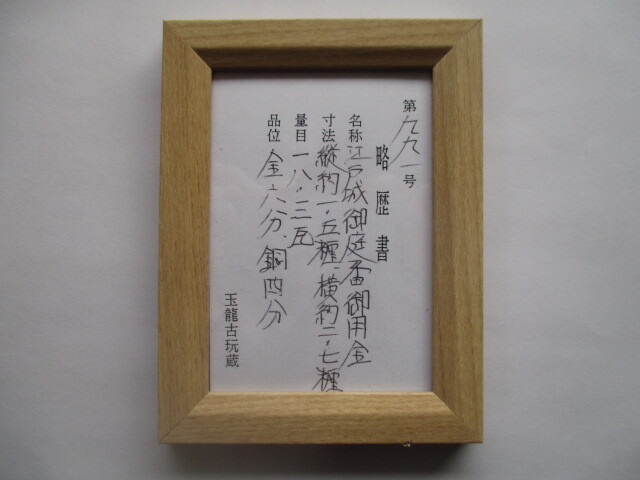 第九九一号
略歴書
名称 江戸城御庭番御用金
寸法 縦約一・五糎、横約二・七糎
量目 一八・三瓦
品位 金六分、銅四分
玉龍古玩蔵